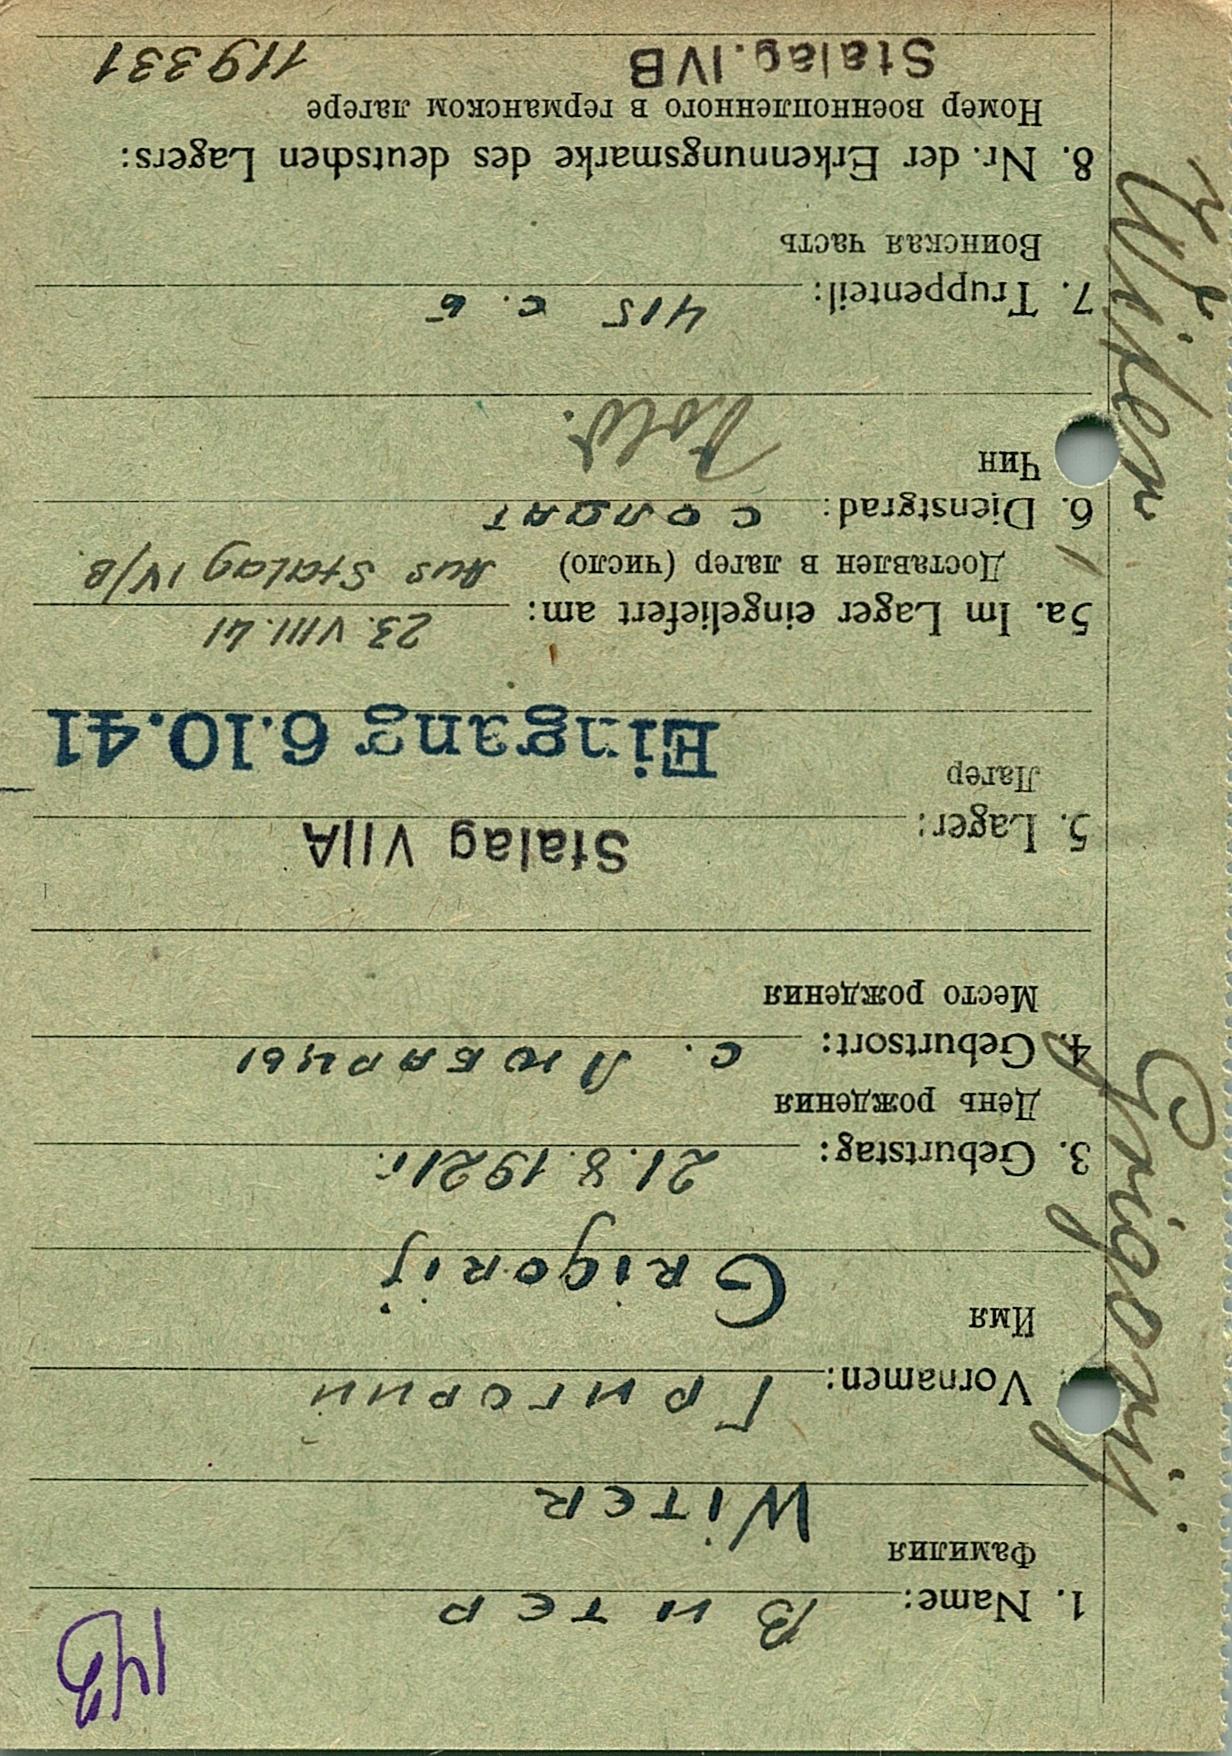 1. Name: Витер
Фамилия
Witer
Vornamen: Григорий
Имя
Grigorij
3. Geburtstag: 21.8.1921г.
День рождения
4. Geburtsort: с. Любарцы
Место рождения
5. Lager: Stalag VIIA
Лагер
Eingang 6.10.41
5a. Im Lager eingeliefert am: 23.VIII.41
Доставлен в лагер (число) Aus Stalag IV/B.
6. Dienstgrad: солдат
Чин
Sold.
7. Truppenteil: 415 с. б
Воинская часть
8. Nr. der Erkennungsmarke des deutschen Lagers:
Номер военнопленного в германском лагере
Stalag.IVB 119331
Witer
Grigorij